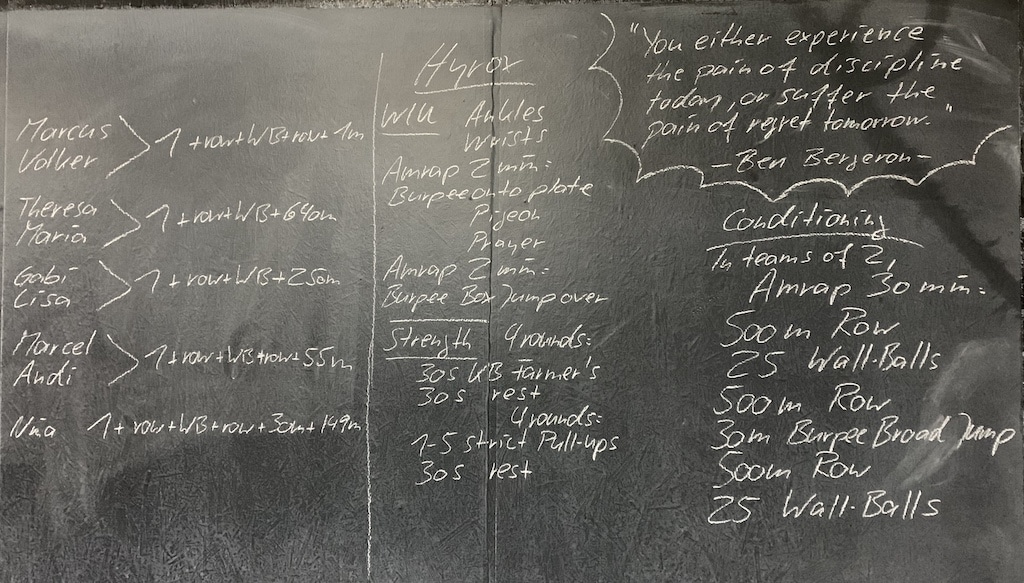 Marcus
Volker
1 + row + WB + row + 1m
Theresa
Maria
1 + row + WB + 640m
Gabi
Lisa
1 + row + WB + 250m
Marcel
Andi
1 + row + WB + row + 55m
Nina 1 + row + WB + row + 30m + 149m
Hyrox
WU Ankles
Wrists
Amrap 2 min:
Burpee onto plate
Pigeon
Prayer
Amrap 2 min:
Burpee Box Jump over
Strength 4 rounds:
30s KB Farmer's
30s rest
4 rounds:
1-5 strict Pull-ups
30s rest
"You either experience
the pain of discipline
today, or suffer the
pain of regret tomorrow."
- Ben Bergeron -
Conditioning
In teams of 2,
Amrap 30 min:
500m Row
25 Wall-Balls
500m Row
30m Burpee Broad Jump
500m Row
25 Wall-Balls